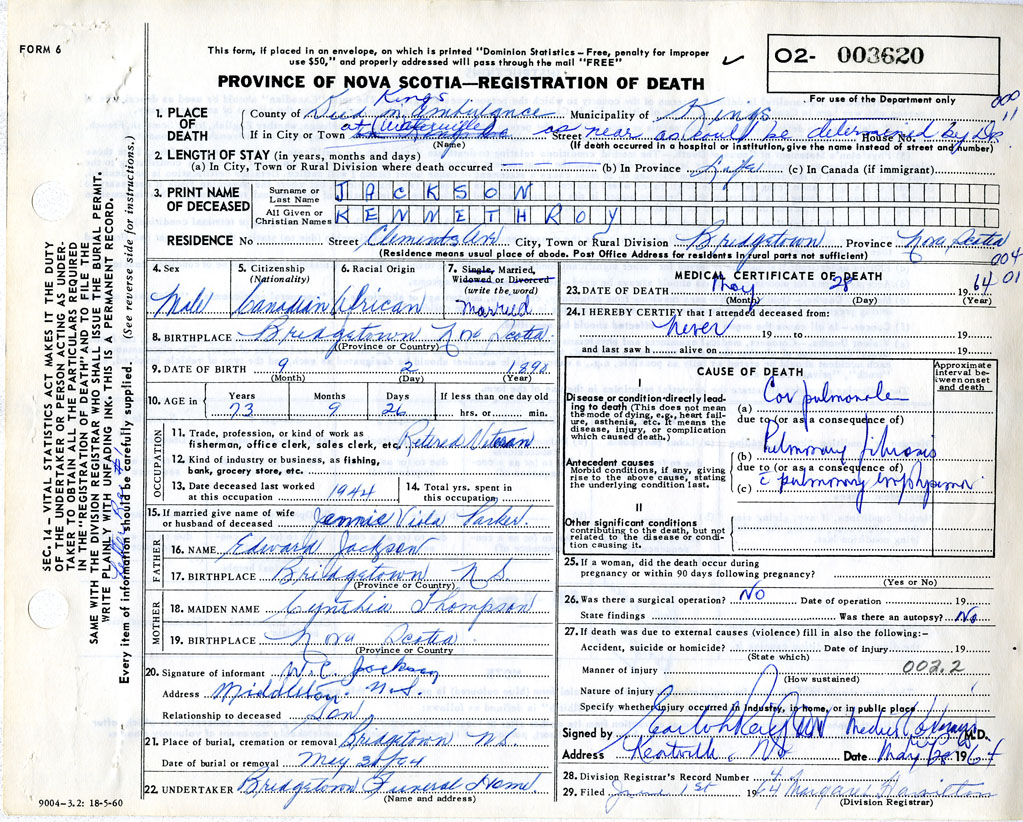 FORM 6
This form, if placed in an envelope, on which is printed "Dominion Statistics – Free, penalty for improper
use $50," and properly addressed will pass through the mail "FREE"
PROVINCE OF NOVA SCOTIA—REGISTRATION OF DEATH
O2- 003620
For use of the Department only
1. PLACE OF DEATH
County of Kings Died in Ambulance Municipality of Kings
If in City or Town at Waterville Street as near as could be determined by Dr. House No.
(Name) (If death occurred in a hospital or institution, give the name instead of street and number)
2. LENGTH OF STAY (in years, months and days)
(a) In City, Town or Rural Division where death occurred (b) In Province Life (c) In Canada (if immigrant)
3. PRINT NAME OF DECEASED
Surname or Last Name JACKSON
All Given or Christian Names KENNETH ROY
RESIDENCE No Street Clements Ave City, Town or Rural Division Bridgetown Province Nova Scotia
(Residence means usual place of abode. Post Office Address for residents in rural parts not sufficient)
004
01
4. Sex Male
5. Citizenship (Nationality) Canadian
6. Racial Origin African
7. Single, Married, Widowed or Divorced (write the word) Married
8. BIRTHPLACE Bridgetown Nova Scotia
(Province or Country)
9. DATE OF BIRTH 9 2 1890
(Month) (Day) (Year)
10. AGE in Years 73 Months 9 Days 26 If less than one day old hrs. or min.
OCCUPATION
11. Trade, profession, or kind of work as
fisherman, office clerk, sales clerk, etc. Retired Veteran
12. Kind of industry or business, as fishing,
bank, grocery store, etc.
13. Date deceased last worked at this occupation 1944
14. Total yrs. spent in this occupation
15. If married give name of wife or husband of deceased Jennie Viola Parker
FATHER
16. NAME Edward Jackson
17. BIRTHPLACE Bridgetown N.S.
(Province or Country)
MOTHER
18. MAIDEN NAME Cynthia Thompson
19. BIRTHPLACE Nova Scotia
(Province or Country
20. Signature of informant W.E. Jackson
Address Middleton N.S.
Relationship to deceased Son
21. Place of burial, cremation or removal Bridgetown N.S.
Date of burial or removal May
22. UNDERTAKER Bridgetown Funeral Home
(Name and address)
MEDICAL CERTIFICATE OF DEATH
23. DATE OF DEATH May 28 1964
(Month) (Day) (Year)
24. I HEREBY CERTIFY that I attended deceased from:
never 19 to 19
and last saw h alive on 19
CAUSE OF DEATH
Approximate interval between onset and death
I
Disease or condition directly leading to death (This does not mean the mode of dying, e.g., heart failure, asthenia, etc. It means the disease, injury, or complication which caused death.)
(a) Cor pulmonale
due to (or as a consequence of)
Antecedent causes
Morbid conditions, if any, giving rise to the above cause, stating the underlying condition last.
(b) Pulmonary fibrosis
due to (or as a consequence of)
(c) c̄ pulmonary emphysema
II
Other significant conditions
contributing to the death, but not related to the disease or condition causing it.
25. If a woman, did the death occur during
pregnancy or within 90 days following pregnancy?
(Yes or No)
26. Was there a surgical operation? NO Date of operation 19
State findings Was there an autopsy? No
27. If death was due to external causes (violence) fill in also the following:–
Accident, suicide or homicide? Date of injury 19
(State which)
Manner of injury 002.2
(How sustained)
Nature of injury
Specify whether injury occurred in industry, in home, or in public place
Signed by M.D.
Address Kentville, NS Date May 28 1964
28. Division Registrar's Record Number 4
29. Filed June 1st 1964 Margaret Hamilton
(Division Registrar)
SEC. 14 – VITAL STATISTICS ACT MAKES IT THE DUTY
OF THE UNDERTAKER OR PERSON ACTING AS UNDER-
TAKER TO OBTAIN ALL THE PARTICULARS REQUIRED
IN THE "REGISTRATION OF DEATH" AND TO FILE THE
SAME WITH THE DIVISION REGISTRAR WHO SHALL ISSUE THE BURIAL PERMIT.
WRITE PLAINLY WITH UNFADING INK. THIS IS A PERMANENT RECORD.
Every item of information should be carefully supplied. (See reverse side for instructions.)
9004–3.2: 18-5-60